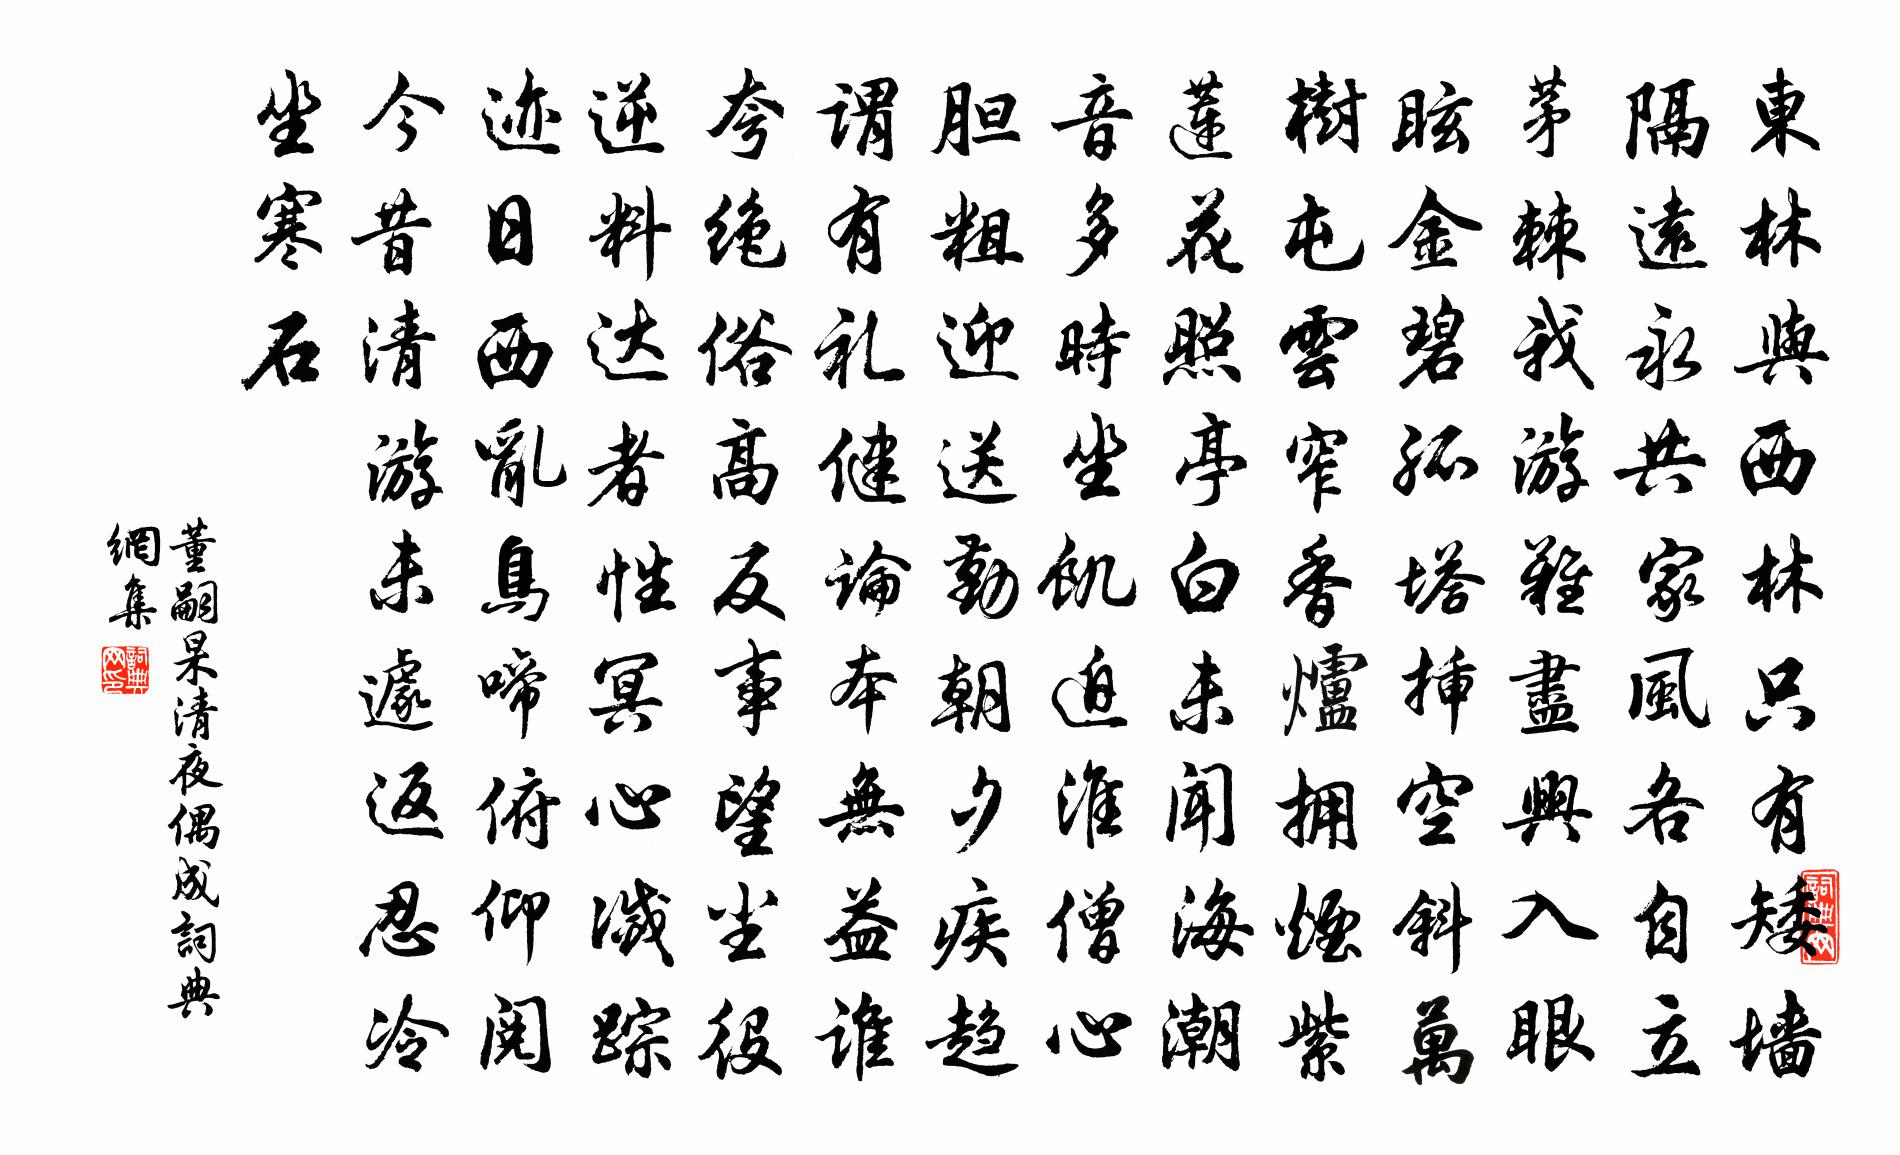 東林與西林只有矮墻
隔遠永共家風各自立
茅棘我游難盡興入眼
眩金碧孤塔挿空斜萬
樹屯雲窄香爐拥煙紫
蓮花照亭白未聞海潮
音多時坐飢迫淮僧心
胆粗迎送勤朝夕疾趋
謂有礼健論本無益谁
夸绝俗高反事望尘役
逆料达者性冥心滅踪
迹日西亂鳥啼俯仰闵
今昔清游未遽返忍冷
坐寒石
董嗣杲清夜偶成詞典
網集
詞典網
詞典网印